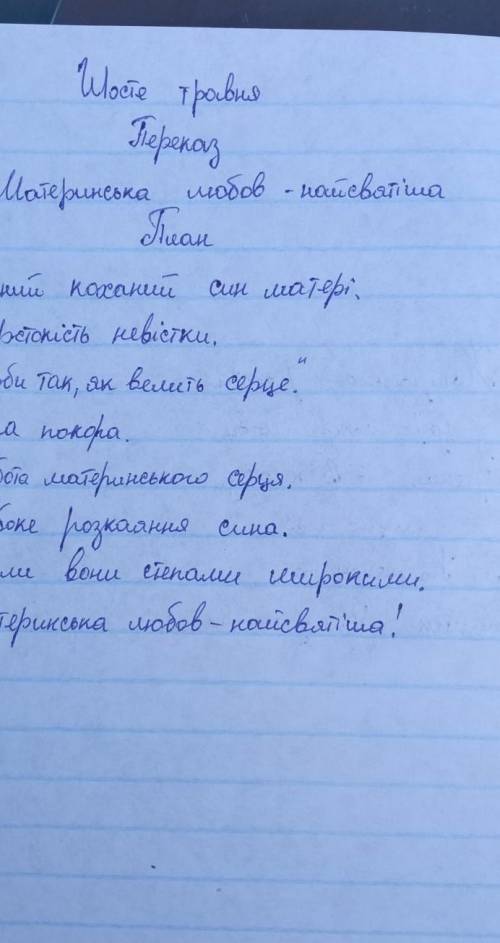 Шосте травня
Переказ
Материнська любов - найсвятіша
План
ний коханий син матері.
рстокість невістки.
оби так, як велить серце."
а покора.
бота материнського серця.
боке розкаяння сина.
ли вони степами широкими.
теринська любов - найсвятіша!